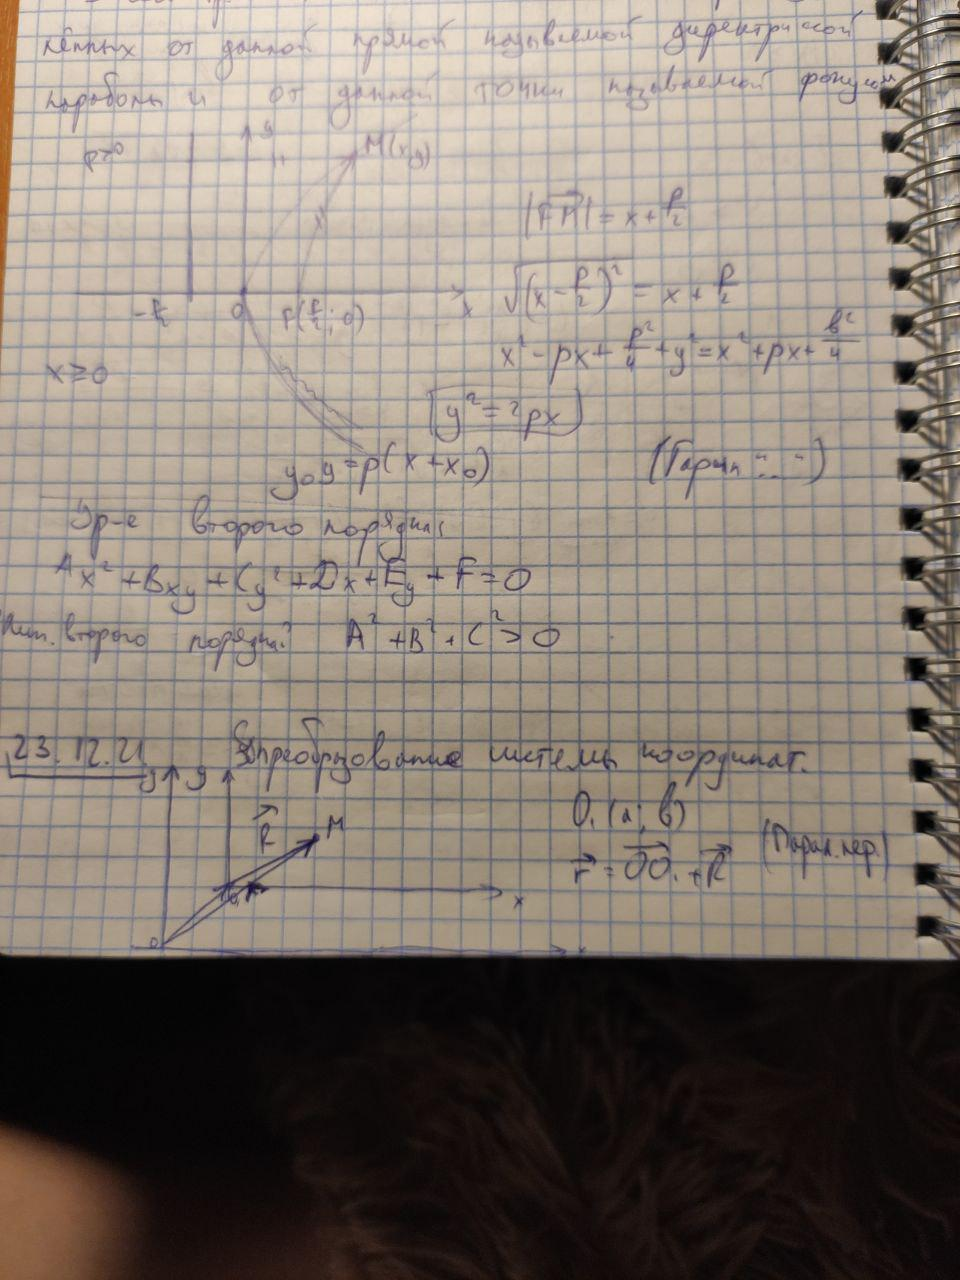 лённых от данной прямой называемой директрисой
параболы и от данной точки называемой фокусом
y
M(x,y)
|FM| = x + p/2
√(x - p/2)² = x + p/2
0 F(p/2; 0) x
x² - px + p²/4 + y² = x² + px + p²/4
x ≥ 0
y² = 2px
y₀y = p(x + x₀)
Ур-е второго порядка
Ax² + Bxy + Cy² + Dx + Ey + F = 0
второго порядка A² + B² + C² > 0
23.12.21 преобразование системы координат.
y y
R M O₁(a; b)
r = OO₁ + R (Парал. пер.)
O₁ x
0 x